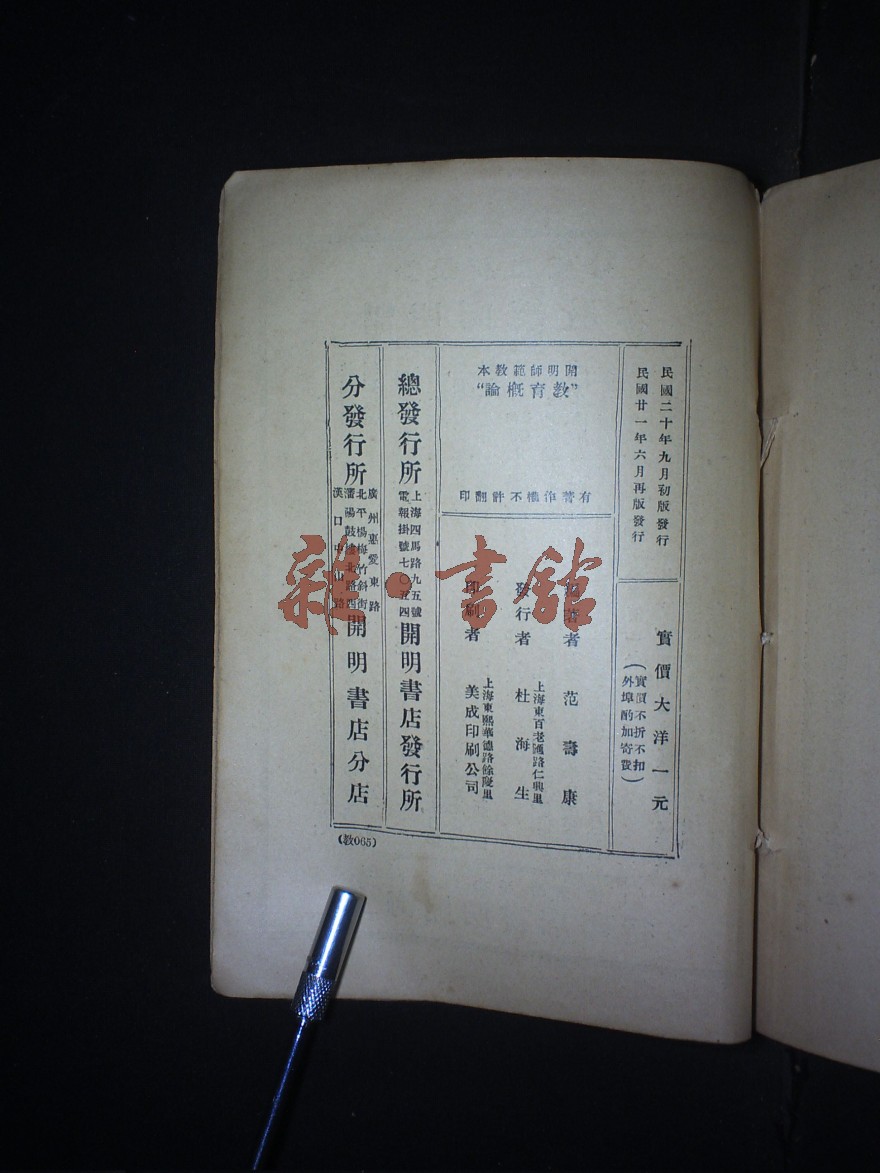 民國二十年九月初版發行
民國廿一年六月再版發行
實價大洋一元
(實價不折不扣
外埠酌加寄費)
開明師範教本
"教育概論"
有著作權不許翻印
著者 范壽康
發行者 杜海生
上海東百老匯路仁興里
印刷者 美成印刷公司
上海東熙華德路餘慶里
總發行所 上海四馬路九五號 電報掛號七〇五四 開明書店發行所
分發行所 廣州惠愛東路 北平楊梅竹斜街 瀋陽鼓樓北路西 漢口中山路 開明書店分店
(教065)
雜·書館